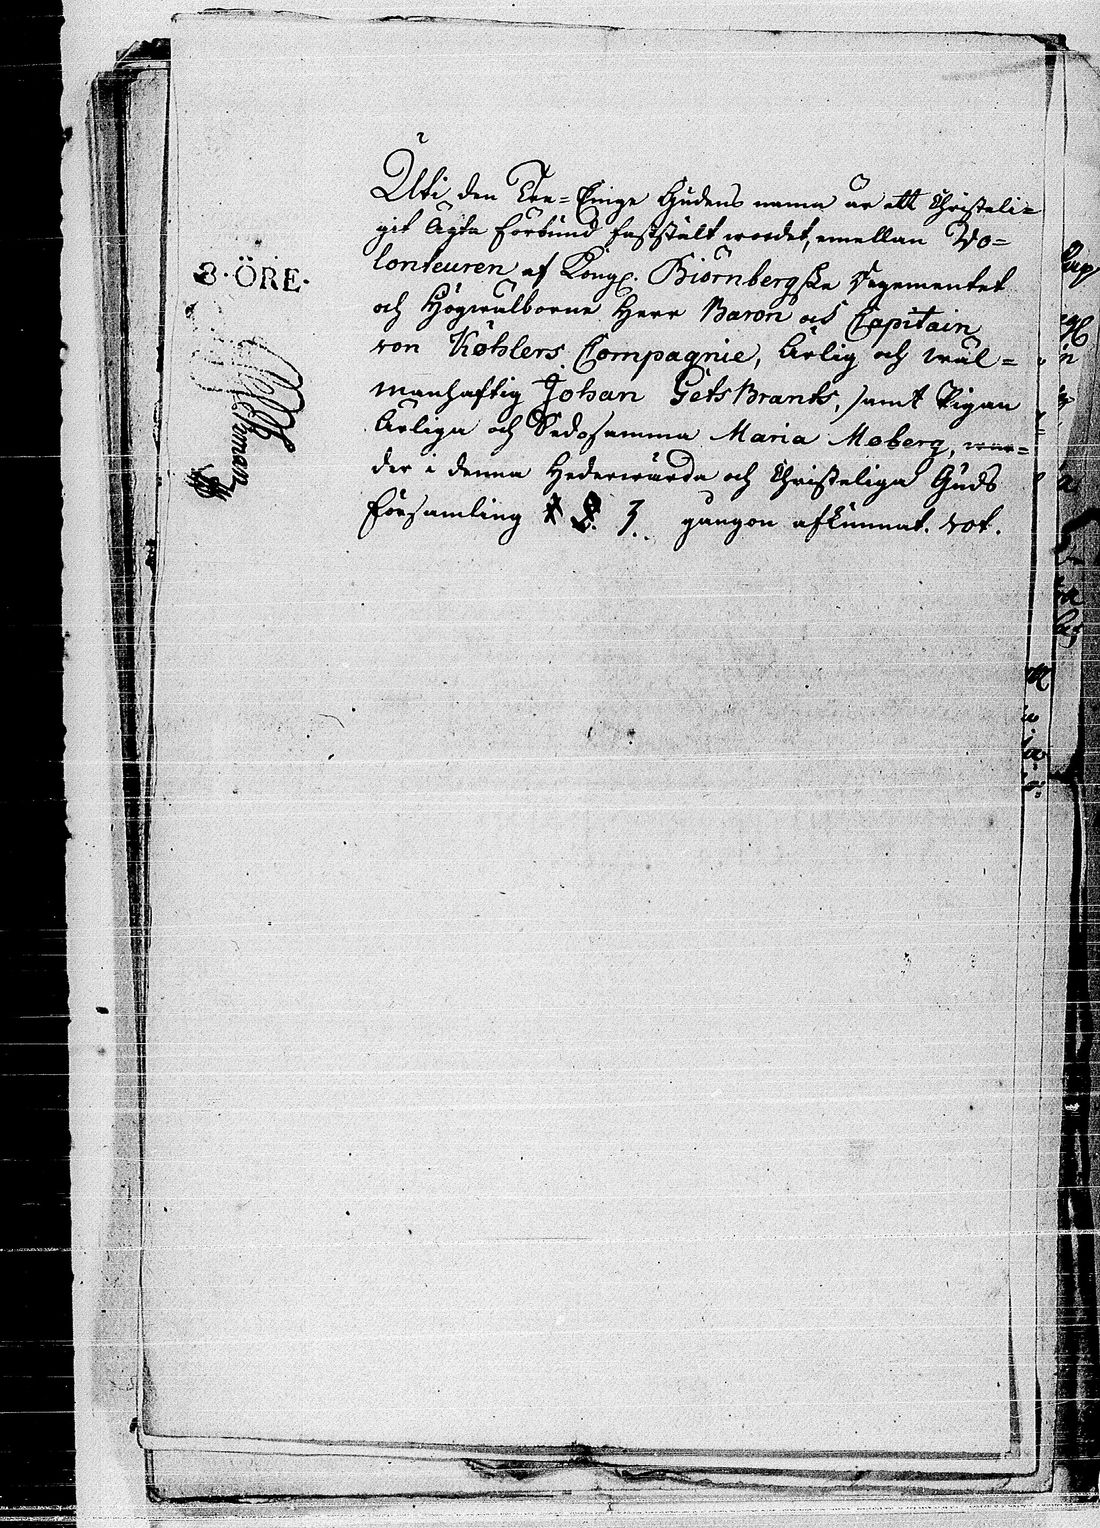 Uti den Tre-Einge Gudens namn är ett Christeli=
git Ägta Förbund fastsält wordet, emellan Vo=
lonteuren af Kongl. Biörnbergske Regementet
och Högwälborne Herr Baron och Capitain
von Köhlers Compagnie, Ärlig och wäl=
manhaftig Johan Gets Brants, samt Pigan
Ärliga och Sedosamma Maria Moberg, war=
der i denna Hederwärda och Christeliga Guds
Församling 3. gångon afkunnat. vot.
3. ÖRE.